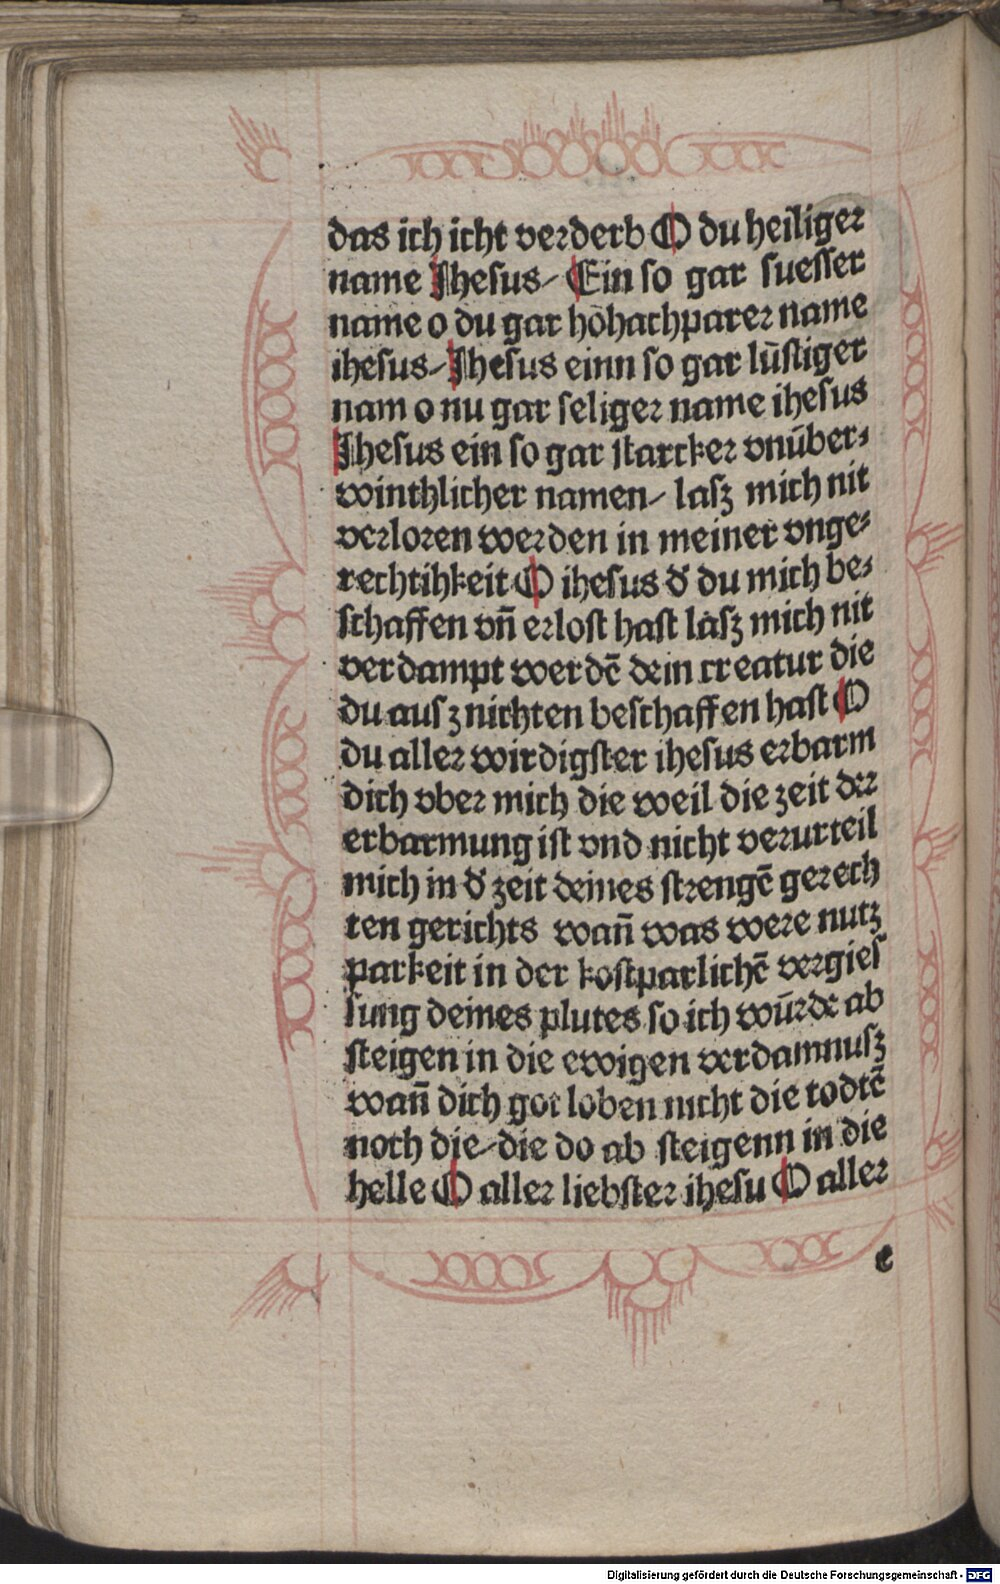 das ich icht verderb O du heiliger
name Jhesus⸗ Ein so gar suesser
name o du gar hōhachparer name
ihesus⸗ Jhesus einn so gar lūstiger
nam o nu gar seliger name ihesus
Jhesus ein so gar starcker vnūber⸗
winthlicher namen⸗ lasz mich nit
verloren werden in meiner vnge⸗
rechtihkeit O ihesus đ du mich be⸗
schaffen vn̄ erlost hast lasz mich nit
verdampt werdē dein creatur die
du ausz nichten beschaffen hast O
du aller wirdigster ihesus erbarm
dich vber mich die weil die zeit der
erbarmung ist vnd nicht verurteil
mich in đ zeit deines strengē gerech
ten gerichts wan̄ was were nutz
parkeit in der kostparlichē vergies
sung deines plutes so ich wūrde ab
steigen in die ewigen verdamnusz
wan̄ dich got loben nicht die todtē
noch die⸗ die do ab steigenn in die
helle O aller liebster ihesu O aller
e
Digitalisierung gefördert durch die Deutsche Forschungsgemeinschaft - DFG